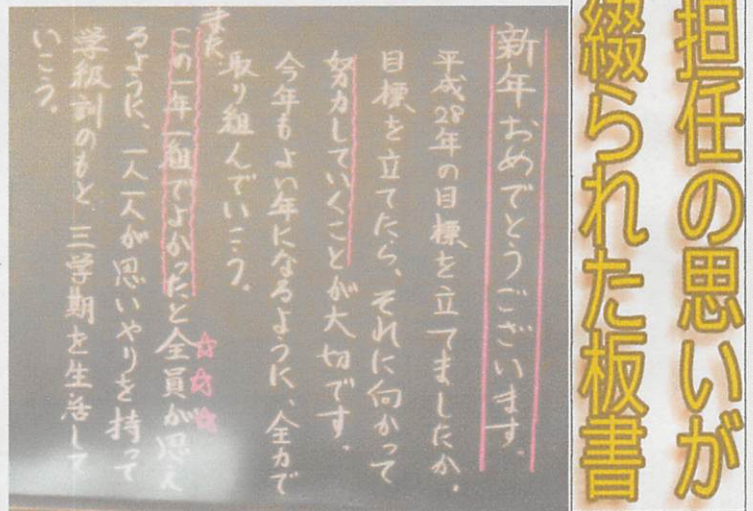 担任の思いが
綴られた板書
新年おめでとうございます。
平成28年の目標を立てましたか。
目標を立てたら、それに向かって
努力していくことが大切です。
今年もよい年になるように、全力で
取り組んでいこう。
また、
この一年一組でよかったと全員が思え
るように、一人一人が思いやりを持って
学級訓のもと、三学期を生活して
いこう。